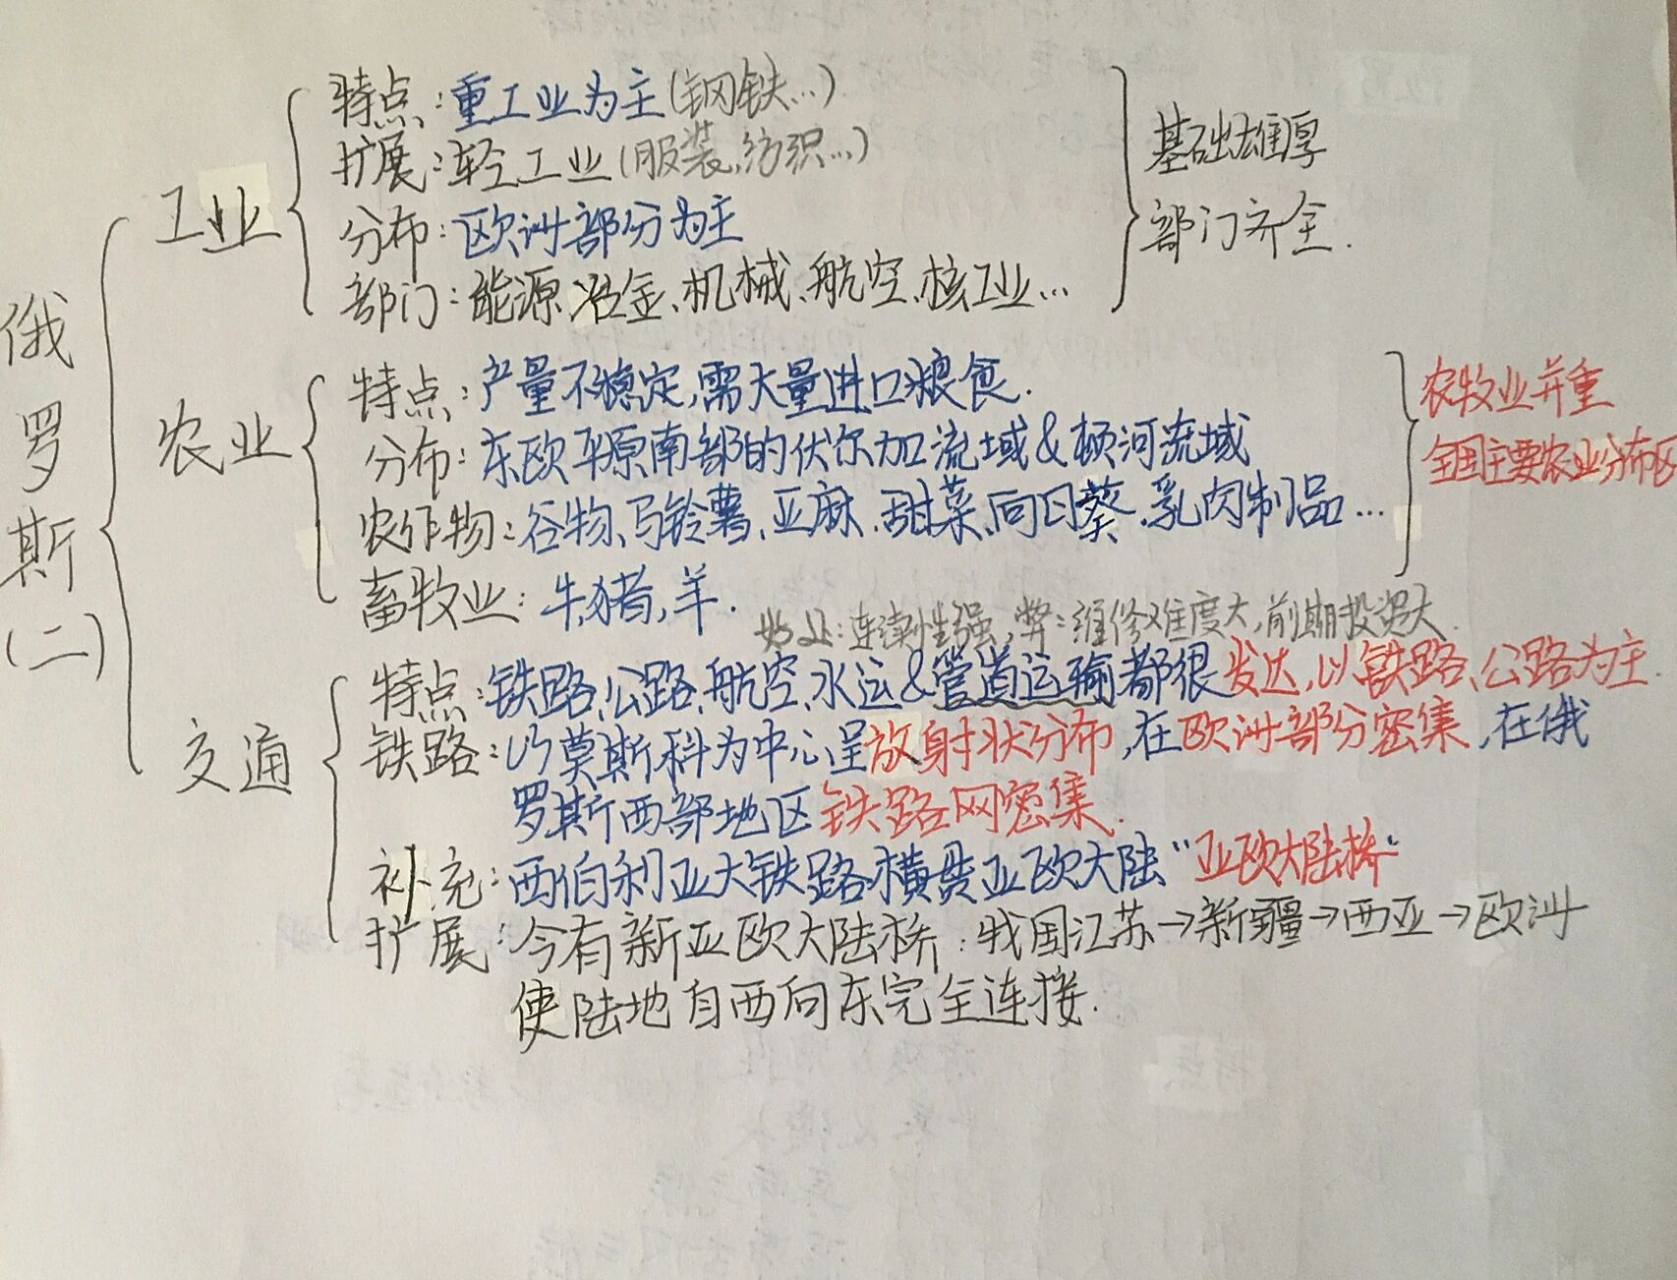 俄罗斯(二)
工业
特点:重工业为主(钢铁…)
扩展:轻工业(服装,纺织…)
分布:欧洲部分为主
部门:能源、冶金、机械、航空、核工业…
基础雄厚
部门齐全.
农业
特点:产量不稳定,需大量进口粮食.
分布:东欧平原南部的伏尔加流域&顿河流域
农作物:谷物、马铃薯、亚麻、甜菜、向日葵、乳肉制品…
畜牧业:牛,猪,羊.
农牧业并重
全国主要农业分布区
交通
好处:连续性强,弊:维修难度大,前期投资大.
特点:铁路、公路、航空、水运&管道运输都很发达,以铁路、公路为主.
铁路:以莫斯科为中心呈放射状分布,在欧洲部分密集,在俄
罗斯西部地区铁路网密集.
补充:西伯利亚大铁路横贯亚欧大陆"亚欧大陆桥"
扩展:今有新亚欧大陆桥:我国江苏→新疆→西亚→欧洲
使陆地自西向东完全连接.